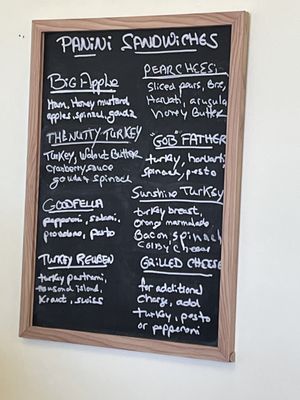 PANINI SANDWICHES
Big Apple
Ham, Honey mustard
apples, spinach, gouda
THE NUTTY TURKEY
Turkey, Walnut Butter
Cranberry sauce
gouda & spinach
GOODFELLA
pepperoni, salami,
provolone, pesto
TURKEY REUBEN
turkey pastrami,
thousand island,
Kraut, swiss
PEAR CHEESE
Sliced pears, Brie,
Havarti, arugula
Honey Butter
"GOB" FATHER
turkey, havarti
spinach, pesto
Sunshine Turkey
turkey breast,
orange marmalade,
Bacon, spinach
Colby cheese
GRILLED CHEESE
for additional
charge, add
turkey, pesto
or pepperoni